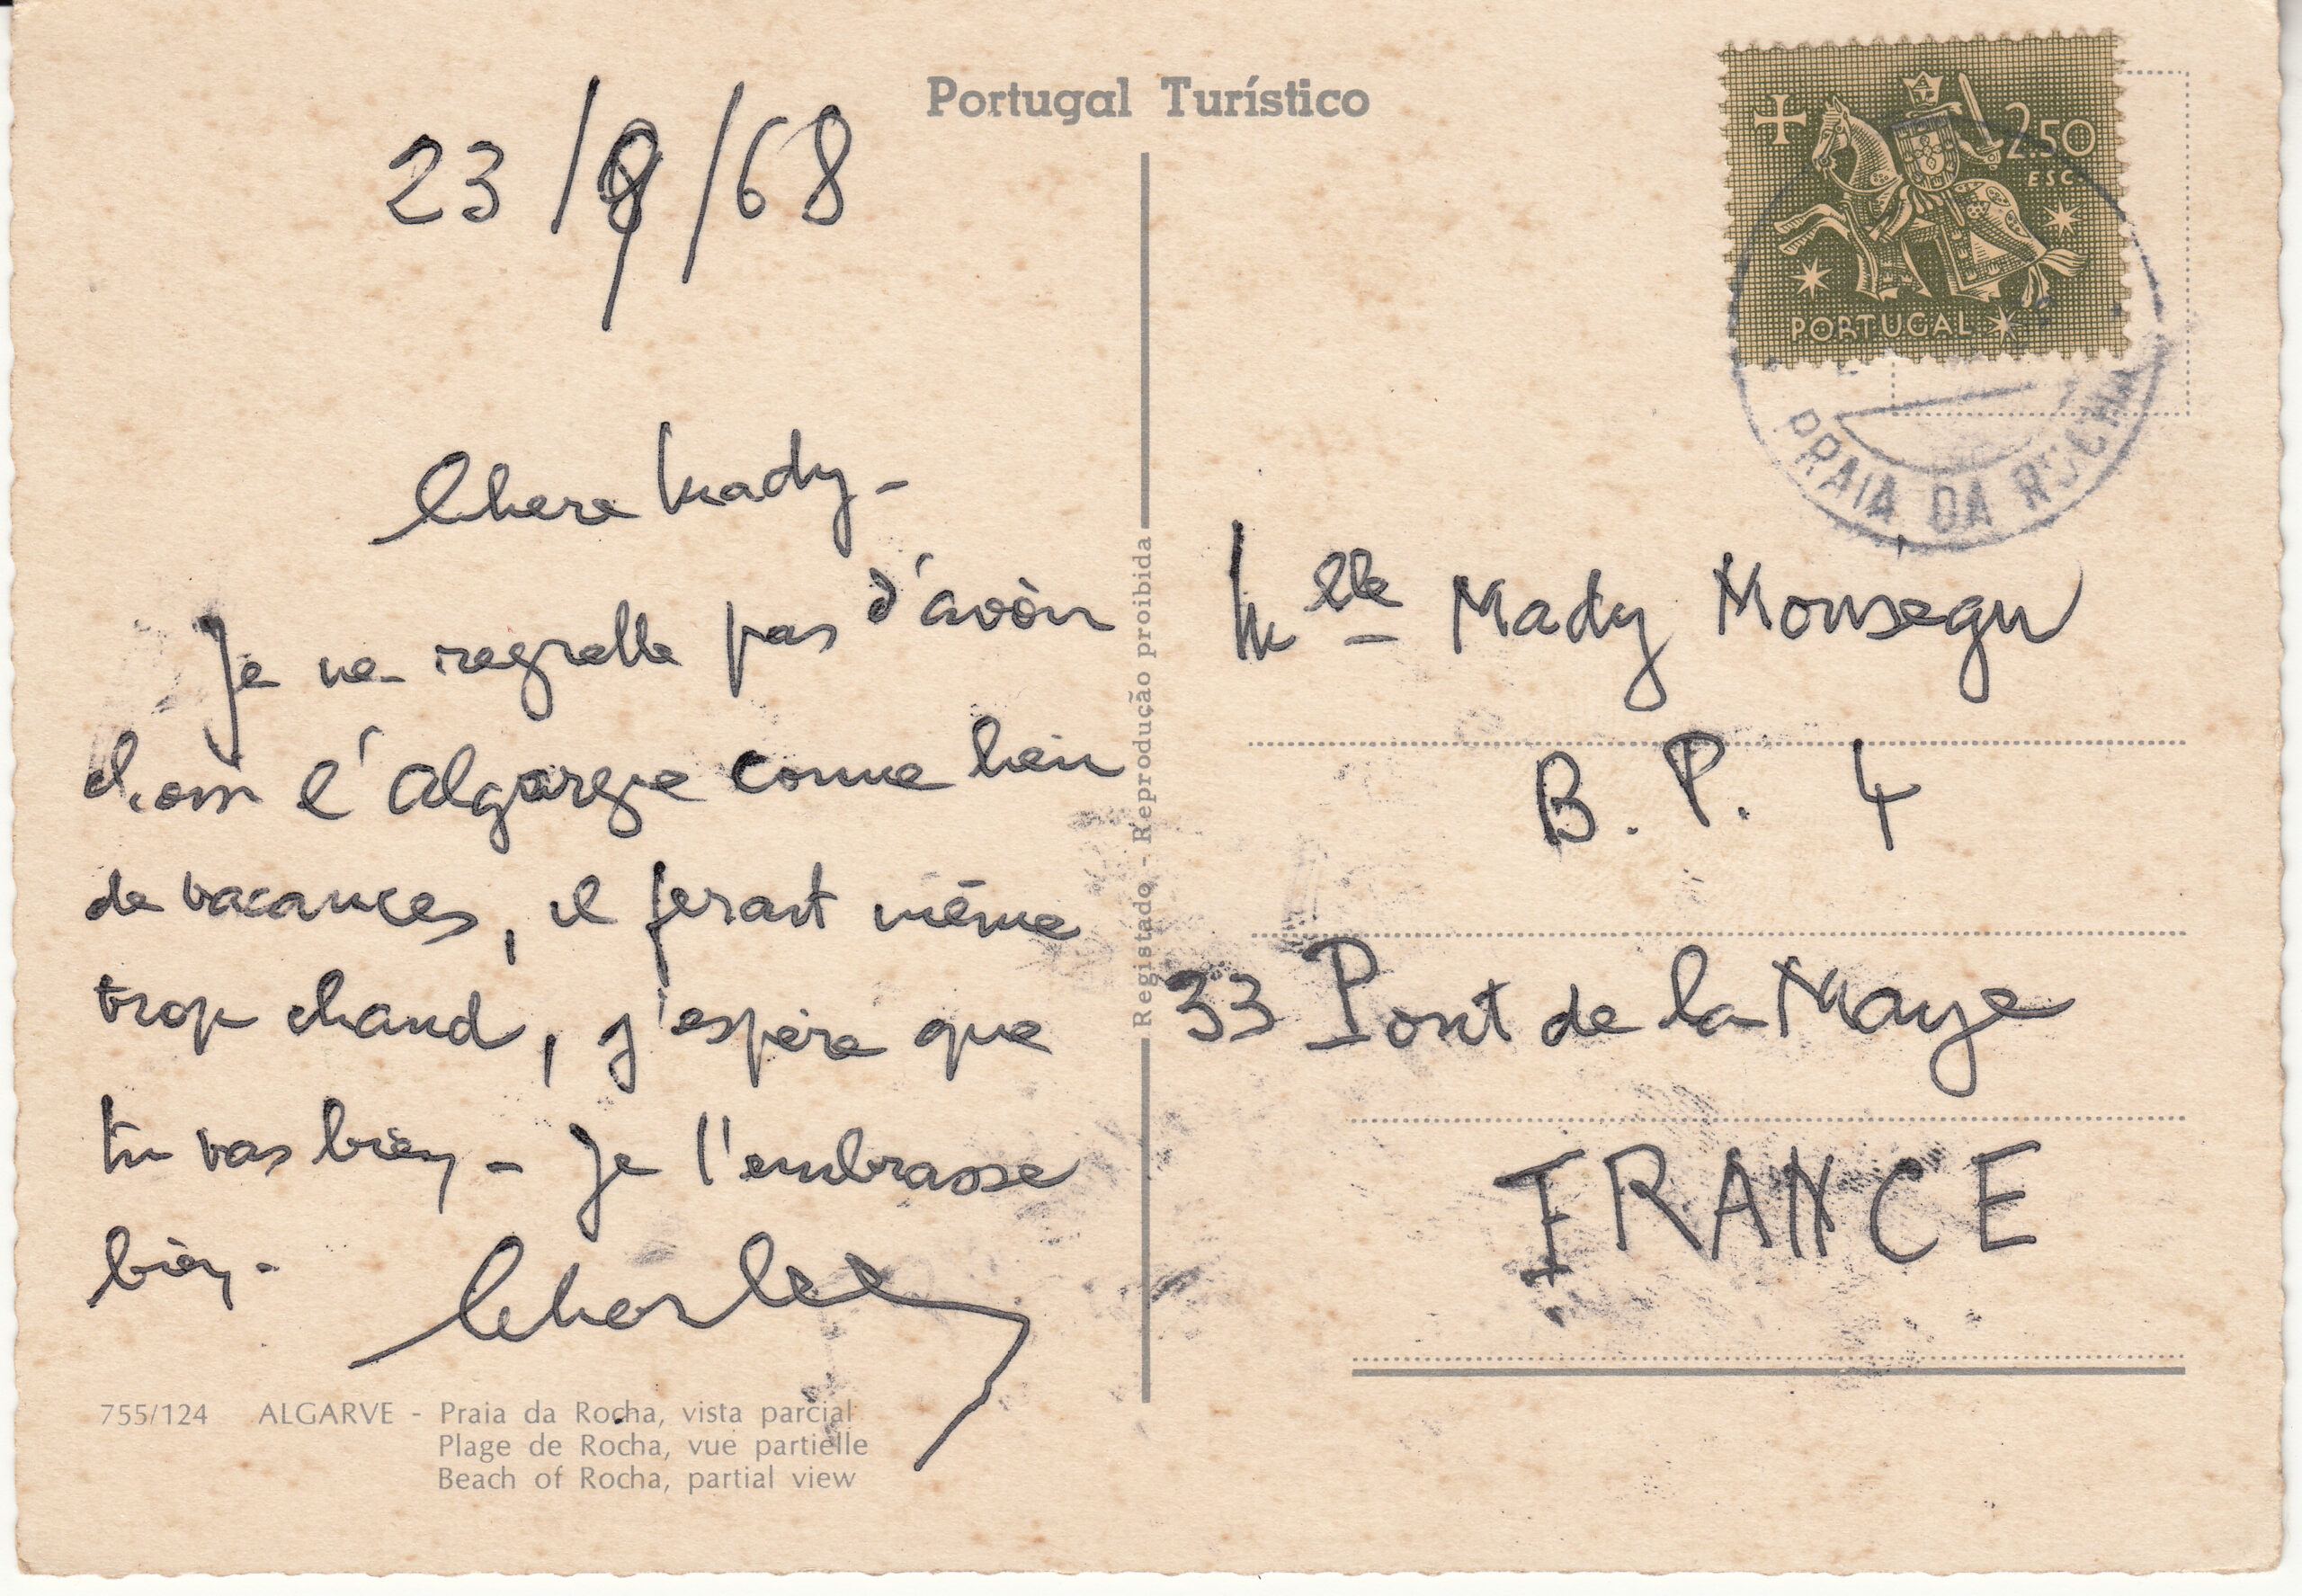 Portugal Turístico
23/9/68
Chère Mady -
Je ne regrette pas d'avoir
choisi l'Algarve comme lieu
de vacances, il ferait même
trop chaud, j'espère que
tu vas bien - Je t'embrasse
bien -
755/124 ALGARVE - Praia da Rocha, vista parcial
Plage de Rocha, vue partielle
Beach of Rocha, partial view
Registado - Reprodução proibida
2$50
ESC.
PORTUGAL
PRAIA DA ROCHA
Mlle Mady Monségu
B. P. 4
33 Pont de la Maye
FRANCE